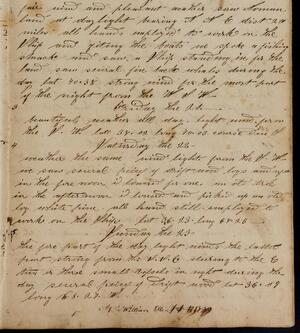 fair wind and pleasant weather saw Noman
land at day light bearing N N E dist 20
miles all hands employed to work on the
Ship and geting the boats in spoke a fishing
smack and saw a Ship standing in for the
land saw several fin back whales during the
day but wind strong wind for the most part
of the night from the W N W
3 Friday the 21
beautyfull weather all day light wind from
the N. W. lat 37.02 long 70.03 course
4 Saturday the 22
weather the same wind light from the N. W.
we saw several pieces of drift wood logs and
in the fore noon I lowered for one
in the afternoon I lowered and picked up one
log white pine all hand still employed to
work on the Ship lat 36-23 long 68-28
5 Sunday the 23
the fore part of the day light wind the latter
part strong from the N. N. E steering to the E
two or three small in sight during the
day several pieces of drift wood lat 36.49
long 65.27 W.
William